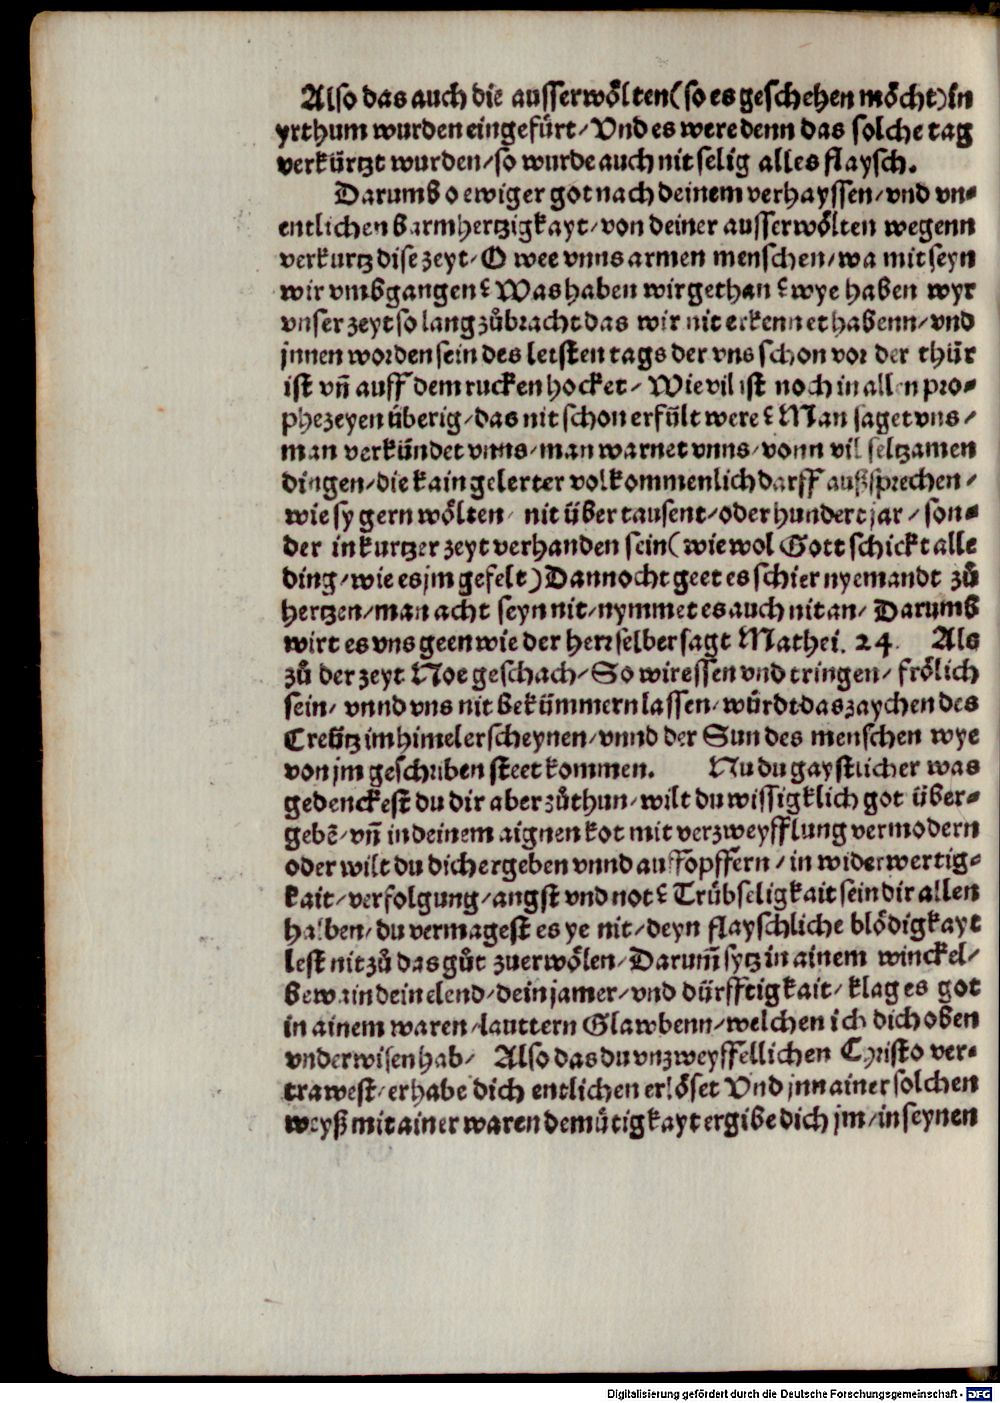 Also das auch die ausserwölten (so es geschehen möcht) in
yrthum wurden eingefürt / Vnd es were denn das solche tag
verkürtzt wurden / so wurde auch nit selig alles flaysch.
Darumb o ewiger got nach deinem verhayssen / vnd vn=
entlichen barmhertzigkayt / von deiner ausserwölten wegenn
verkurtz dise zeyt / O wee vnns armen menschen / wa mit seyn
wir vmbgangen? Was haben wir gethan? wye haben wyr
vnser zeyt so lang zůbracht das wir nit erkennet habenn / vnd
jnnen worden sein des letsten tags der vns schon vor der thür
ist vñ auff dem rucken hocket / Wie vil ist noch in allen pro=
phezeyen überig / das nit schon erfült were? Man saget vns /
man verkündet vnns / man warnet vnns / vonn vil seltzamen
dingen / die kain gelerter volkommenlich darff außsprechen /
wie sy gern wölten / nit über tausent / oder hundert jar / son=
der in kurtzer zeyt verhanden sein (wie wol Gott schickt alle
ding / wie es jm gefelt) Dannocht geet es schier nyemandt zů
hertzen / man acht seyn nit / nymmet es auch nit an / Darumb
wirt es vns geen wie der herr selber sagt Mathei. 24. Als
zů der zeyt Noe geschach / So wir essen vnd tringen / frölich
sein / vnnd vns nit bekümmern lassen / würdt das zaychen des
Creütz im himel erscheynen / vnnd der Sun des menschen wye
von jm geschriben steet kommen. Nu du gaystlicher was
gedenckest du dir aber zůthun / wilt du wissigklich got über=
gebē / vñ in deinem aignen kot mit verzweyfflung vermodern
oder wilt du dich ergeben vnnd auffopffern / in widerwertig=
kait / verfolgung / angst vnd not? Trübseligkait sein dir allen
halben / du vermagest es ye nit / deyn flayschliche blödigkayt
lest nit zů das gůt zuerwölen / Darum̃ sytz in ainem winckel /
bewain dein elend / dein jamer / vnd dürfftigkait / klag es got
in ainem waren / lauttern Glawbenn / welchen ich dich oben
vnderwisen hab / Also das du vnzweyffellichen Christo ver=
trawest / er habe dich entlichen erlöset Vnd jnn ainer solchen
weyß mit ainer waren demütigkayt ergibe dich jm / in seynen
Digitalisierung gefördert durch die Deutsche Forschungsgemeinschaft - DFG